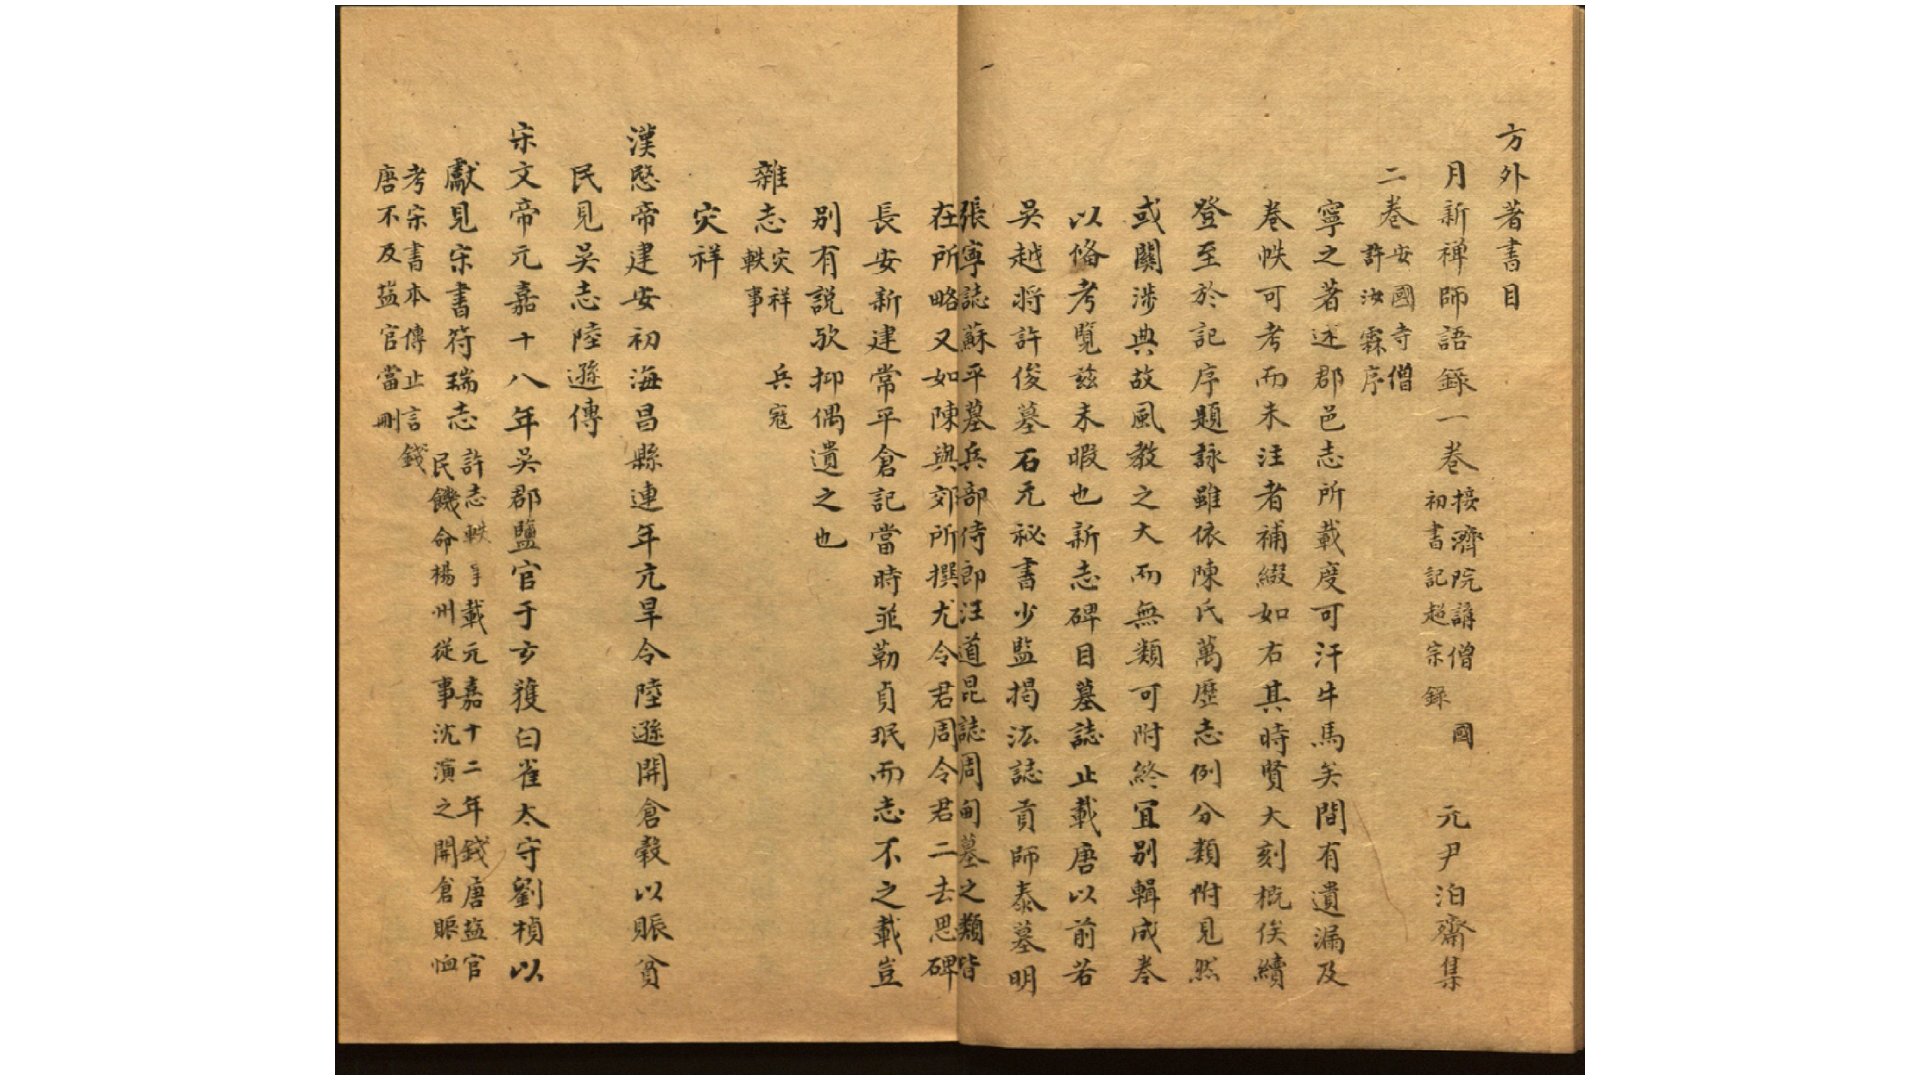 方外著書目
月新禅師語錄一卷 接濟院講僧 初書記超宗錄 國 元尹泊齋集
二卷 安國寺僧 許汝霖序
寧之著述郡邑志所載度可汗牛馬矣間有遺漏及
卷帙可考而未注者補綴如右其時賢大刻概俟續
登至於記序題詠雖依陳氏萬歷志例分類附見然
或關涉典故風教之大而無類可附終宜别輯成卷
以俻考覽兹未暇也新志碑目墓誌止載唐以前若
吳越将許俊墓石元祕書少監揭汯誌貢師泰墓明
張寧誌蘇平墓兵部侍郎汪道昆誌周甸墓之類皆
在所略又如陳與郊所撰尤令君周令君二去思碑
長安新建常平倉記當時並勒貞珉而志不之載豈
别有説歟抑偶遺之也
雜志 灾祥 兵寇 軼事
灾祥
漢愍帝建安初海昌縣連年亢旱令陸遜開倉榖以賑貧
民見吳志陸遜傳
宋文帝元嘉十八年吳郡鹽官于方獲白雀太守劉楨以
獻見宋書符瑞志 許志軼事載元嘉十二年錢唐盐官 民饑命楊州從事沈演之開倉賑恤
考宋書本傳止言錢
唐不及盐官當刪